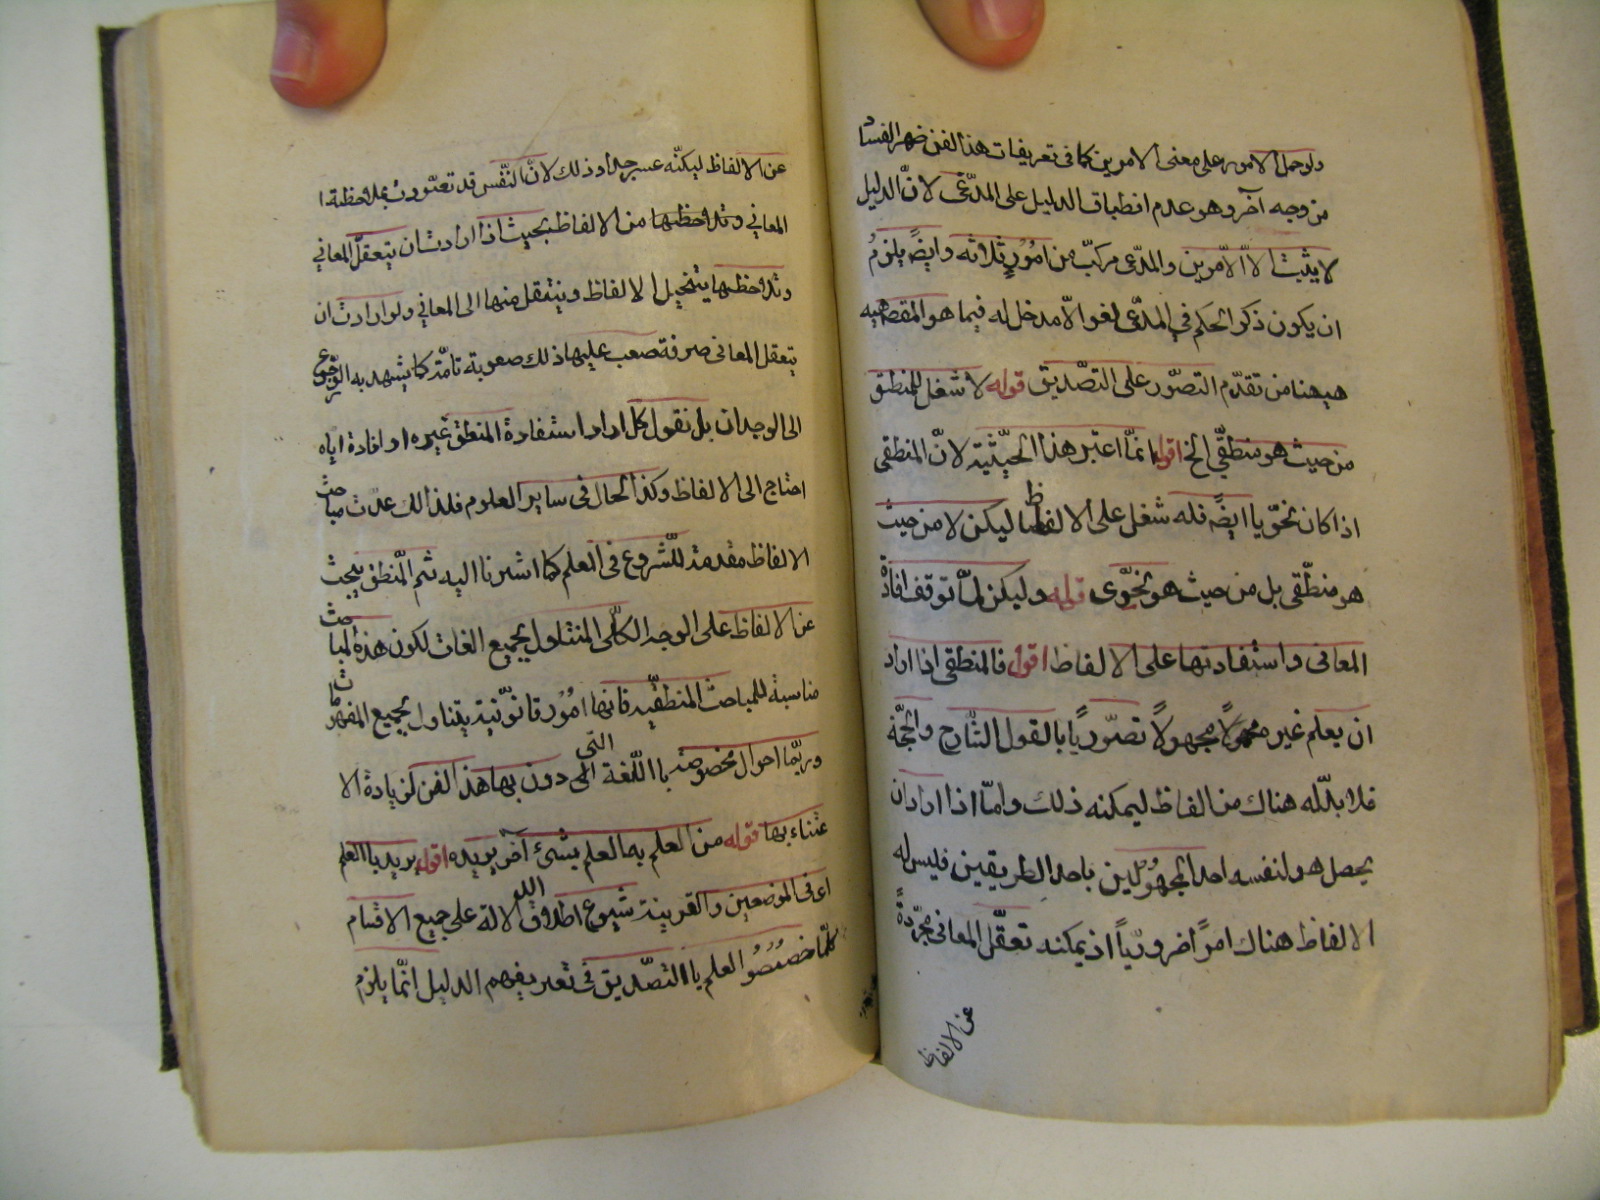 ولو حمل الامور على معنى الامرين كما في تعريفات هذا الفن ظهر الفساد
من وجه آخر وهو عدم انطباق الدليل على المدّعى لانّ الدليل
لا يثبت الاّ الامرين والمدّعى مركّب من امُورٍ ثلاثه وايضً يلزمُ
ان يكون ذكر الحكم في المدّعى لغوا لاّ مدخل له فيما هو المقصد فيه
هيهنا من تقدّم التصوّر على التصّديق قوله لا شغل للمنطق
من حيث هو منطقّي الخ اقول انمّا اعتبر هذا الحيّثية لانّ المنطقى
اذا كان نحوّيا ايضًا فله شغل على الالفاظ ليكن لا من حيث
هو منطّقى بل من حيث هو نحوّى قوله وليكن لمّا توقف افادة
المعانى واستفادتها على الالفاظ اقول فالمنطقى اذا اراد
ان يعلم غيره مجهولاً تصوّريًا بالقول الشّارح والحجّة
فلا بدّ له هناك من الفاظ ليمكنه ذلك وامّا اذا اراد ان
يحصل هو لنفسه احد المجهُولين باحد الطريقين فليس له
الالفاظ هناك امرًا ضروريّاً اذ يمكنه تعقّل المعانى مجرّدةً
عن الالفاظ
عن الالفاظ ليكنّه عسر جدا وذلك لانّ النّفس قد تعوّدت بملاحظة ا
المعاني وتلاحظها من الالفاظ بحيث اذا ارادت ان يتعقلّ المعاني
وتلاحظها يتخيل الالفاظ وينتقل منها الى المعاني ولو ارادت ان
يتعقل المعانى صرفة صعب عليها ذلك صعوبة تامّة كما يشهد به الرّجوع
الى الوجدان بل نقول كل اراد استفادة المنطق غيره او افادة اياه
احتاج الى الالفاظ وكذا الحال فى ساير العلوم فلذالك عدّت مباحث
الالفاظ مقدمة للّشروع فى العلم كما اشرنا اليه ثم المنطق يبحث
عن الالفاظ على الوجه الكلّى المتناول لجميع الغات لكون هذه المباحث
مناسبة للمباحث المنطقّيه فانها امُور قانوّنية يتناول لجميع المفهومات
وربّما احوال مخصوصة باللّغة التى دون بها هذا الفن لزيادة الا
عتناء بها قوله من العلم به العلم بشئ آخر يريده اقول يريد باالعلم
اى فى الموضعين والقرينة شيوع اطلاق الدلالة على جميع الاقسام
كلّما خصّصُوا العلم باالتصّديق فى تعريفهم الدليل انمّا يلزم